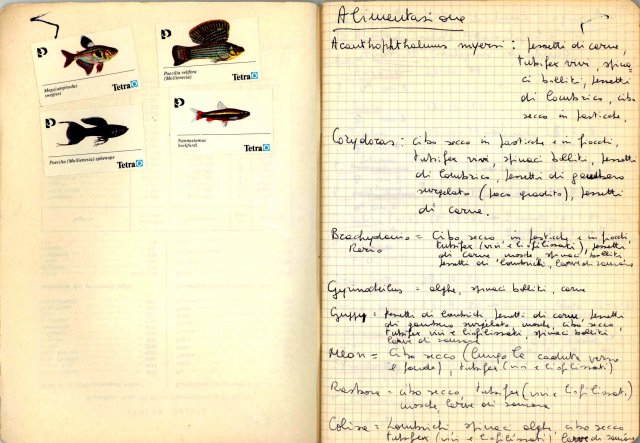 Megalamphodus
sweglesi
Tetra
Poecilia velifera
(Mollienesia)
Tetra
Poecilia (Mollienesia) sphenops
Tetra
Nannostomus
beckfordi
Tetra
Alimentasione
Acanthophthalmus myersi: pessetti di carne,
tubifex vivi, spina-
ci bolliti, pessetti
di lombrico, cibo
secco in pasticche.
Corydoras: cibo secco in pasticche e in fiocchi,
tubifex vivi, spinaci bolliti, pessetti
di lombrico, pessetti di gambero
surgelato (poco gradito), pessetti
di carne.
Brachydanio = Cibo secco in pasticche e in fiocchi
Rerio tubifex (vivi e liofilissati), pessetti
di carne, mosche, spinaci bolliti,
pessetti di lombrichi, larve di zanzare
Gyrinocheilus = alghe, spinaci bolliti, carne
Guppy = pessetti di lombrichi, pessetti di carne, pessetti
di gambero surgelato, mosche, cibo secco,
tubifex vivi e liofilissati, spinaci bolliti,
larve di zanzare
Neon = Cibo secco (lungo la caduta verso
il fondo), tubifex (vivi e liofilissati)
Rasbora = cibo secco, tubifex (vivi e liofilissati)
mosche, larve di zanzare
Colisa = Lombrichi, spinaci, alghe, cibo secco,
tubifex (vivi e liofilissati), larve di zanzare